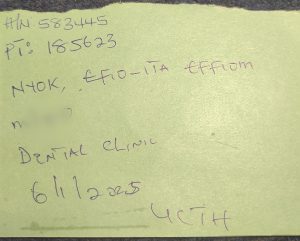 H/N 583445
PT: 185623
NYOK, EFIO-ITA EFFIOM
DENTAL CLINIC
6/1/2025
UCTH